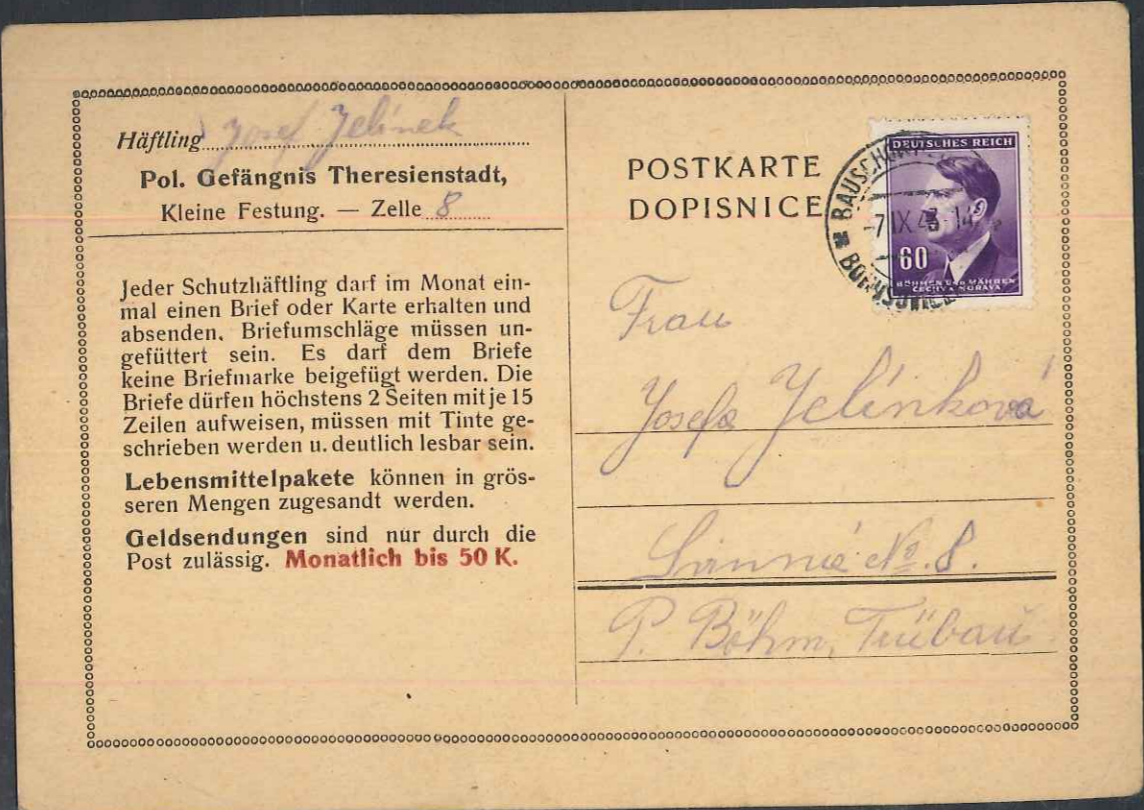 Häftling Josef Jelínek
Pol. Gefängnis Theresienstadt,
Kleine Festung. — Zelle 8
Jeder Schutzhäftling darf im Monat ein-
mal einen Brief oder Karte erhalten und
absenden. Briefumschläge müssen un-
gefüttert sein. Es darf dem Briefe
keine Briefmarke beigefügt werden. Die
Briefe dürfen höchstens 2 Seiten mit je 15
Zeilen aufweisen, müssen mit Tinte ge-
schrieben werden u. deutlich lesbar sein.
Lebensmittelpakete können in grös-
seren Mengen zugesandt werden.
Geldsendungen sind nur durch die
Post zulässig. Monatlich bis 50 K.
POSTKARTE
DOPISNICE
DEUTSCHES REICH
60
BÖHMEN UND MÄHREN
ČECHY A MORAVA
-7.IX.43-14
Frau
Josefa Jelínková
No. 8.
P. Böhm. Trübau